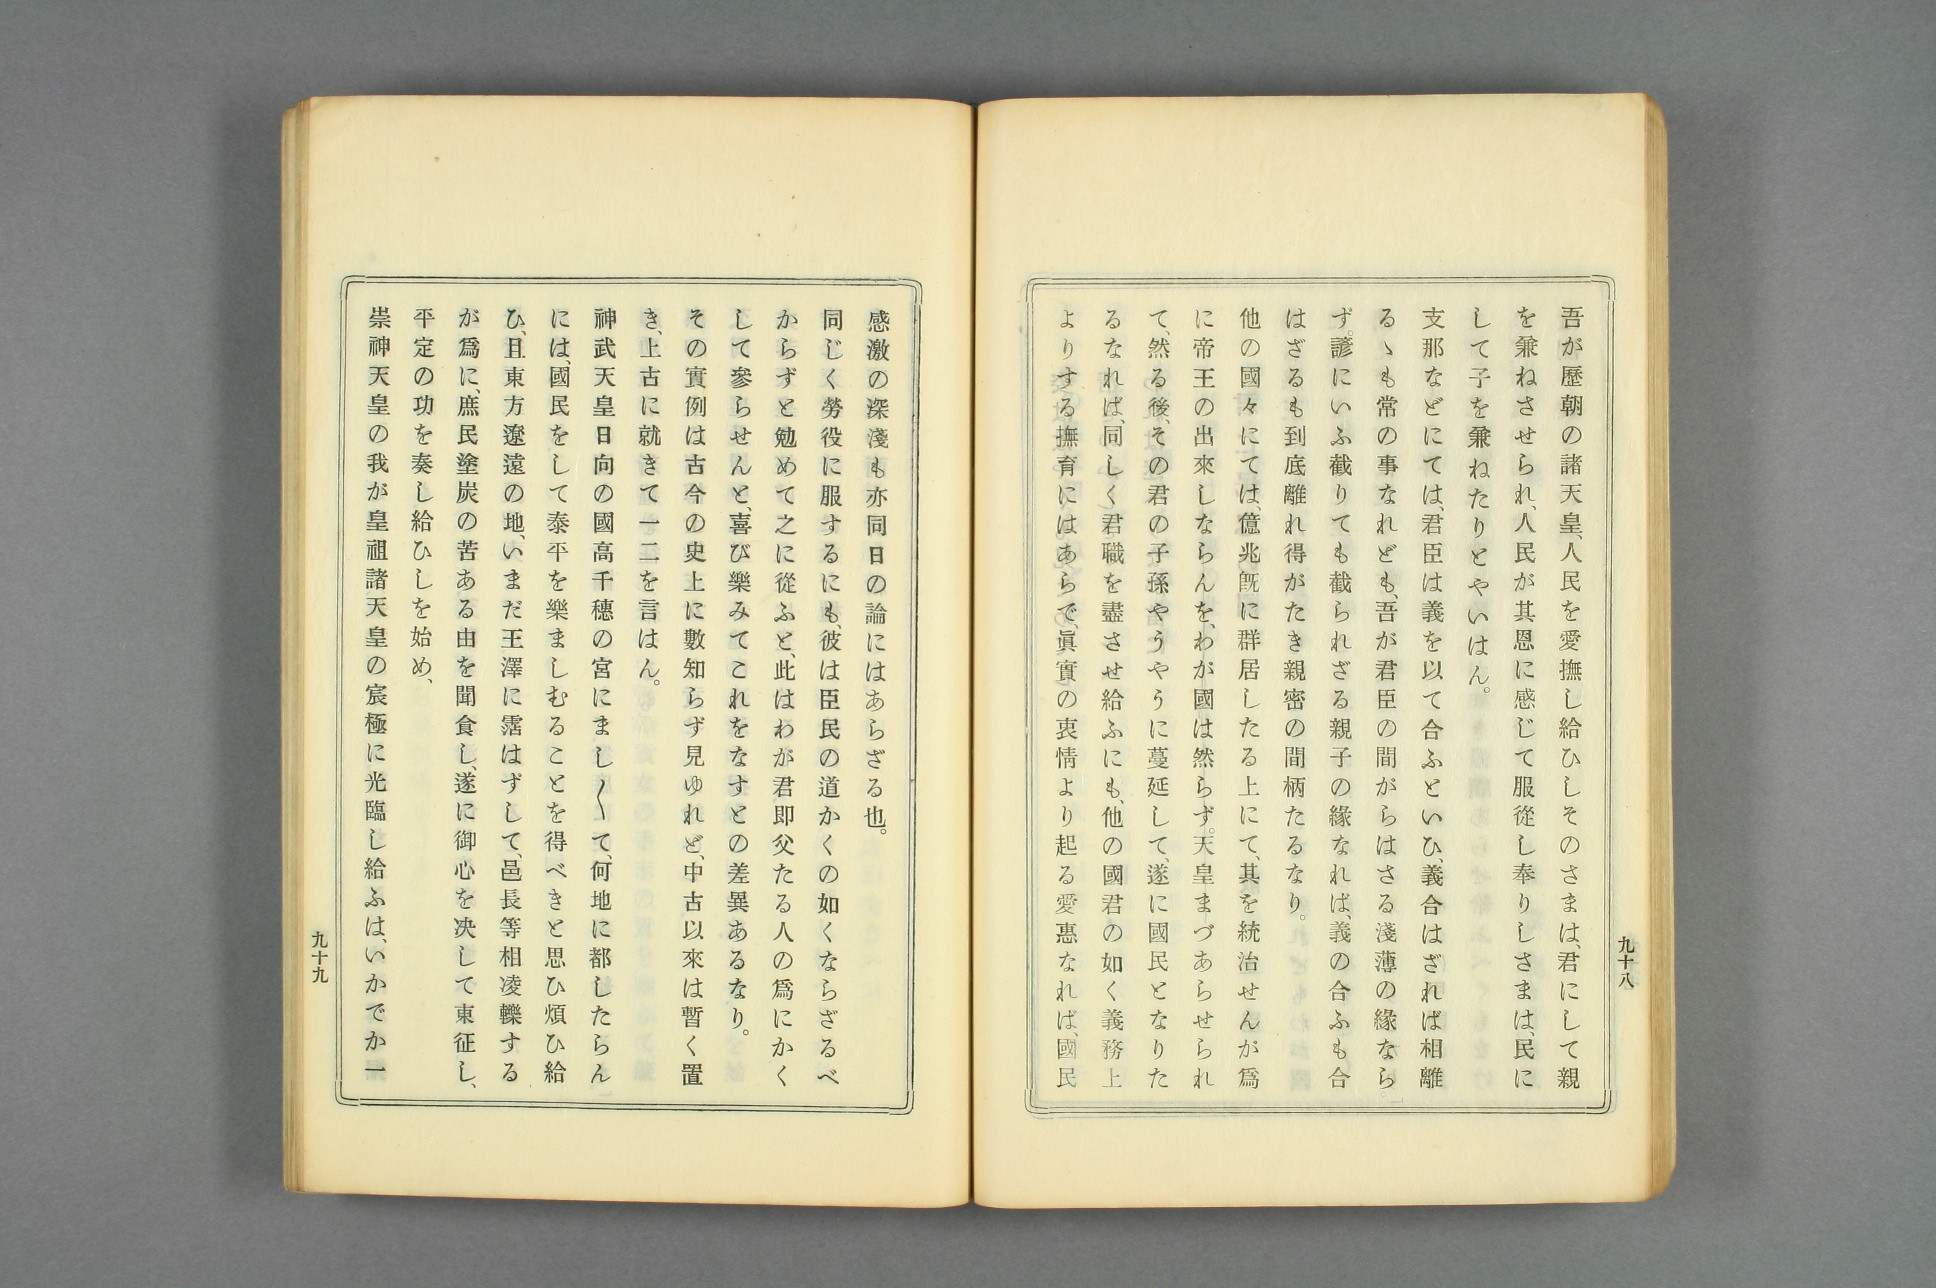 吾が歷朝の諸天皇、人民を愛撫し給ひしそのさまは、君にして親
を兼ねさせられ、人民が其恩に感じて服從し奉りしさまは、民に
して子を兼ねたりとやいはん。
支那などにては、君臣は義を以て合ふといひ、義合はざれば相離
るゝも常の事なれども、吾が君臣の間がらはさる淺薄の緣なら
ず。諺にいふ截りても截られざる親子の緣なれば、義の合ふも合
はざるも到底離れ得がたき親密の間柄たるなり。
他の國々にては、億兆既に群居したる上にて、其を統治せんが爲
に帝王の出來しならんを、わが國は然らず。天皇まづあらせられ
て、然る後、その君の子孫やうやうに蔓延して、遂に國民となりた
るなれば、同しく君職を盡させ給ふにも、他の國君の如く義務上
よりする撫育にはあらで、眞實の衷情より起る愛惠なれば、國民
九十八
感激の深淺も亦同日の論にはあらざる也。
同じく勞役に服するにも、彼は臣民の道かくの如くならざるべ
からずと勉めて之に從ふと、此はわが君即父たる人の爲にかく
して參らせんと、喜び樂みてこれをなすとの差異あるなり。
その實例は古今の史上に數知らず見ゆれど、中古以來は暫く置
き、上古に就きて一二を言はん。
神武天皇日向の國高千穗の宮にまし〱て、何地に都したらん
には、國民をして泰平を樂ましむることを得べきと思ひ煩ひ給
ひ、且東方遼遠の地、いまだ王澤に霑はずして、邑長等相凌轢する
が爲に、庶民塗炭の苦ある由を聞食し、遂に御心を决して東征し、
平定の功を奏し給ひしを始め、
崇神天皇の我が皇祖諸天皇の宸極に光臨し給ふは、いかでか一
九十九